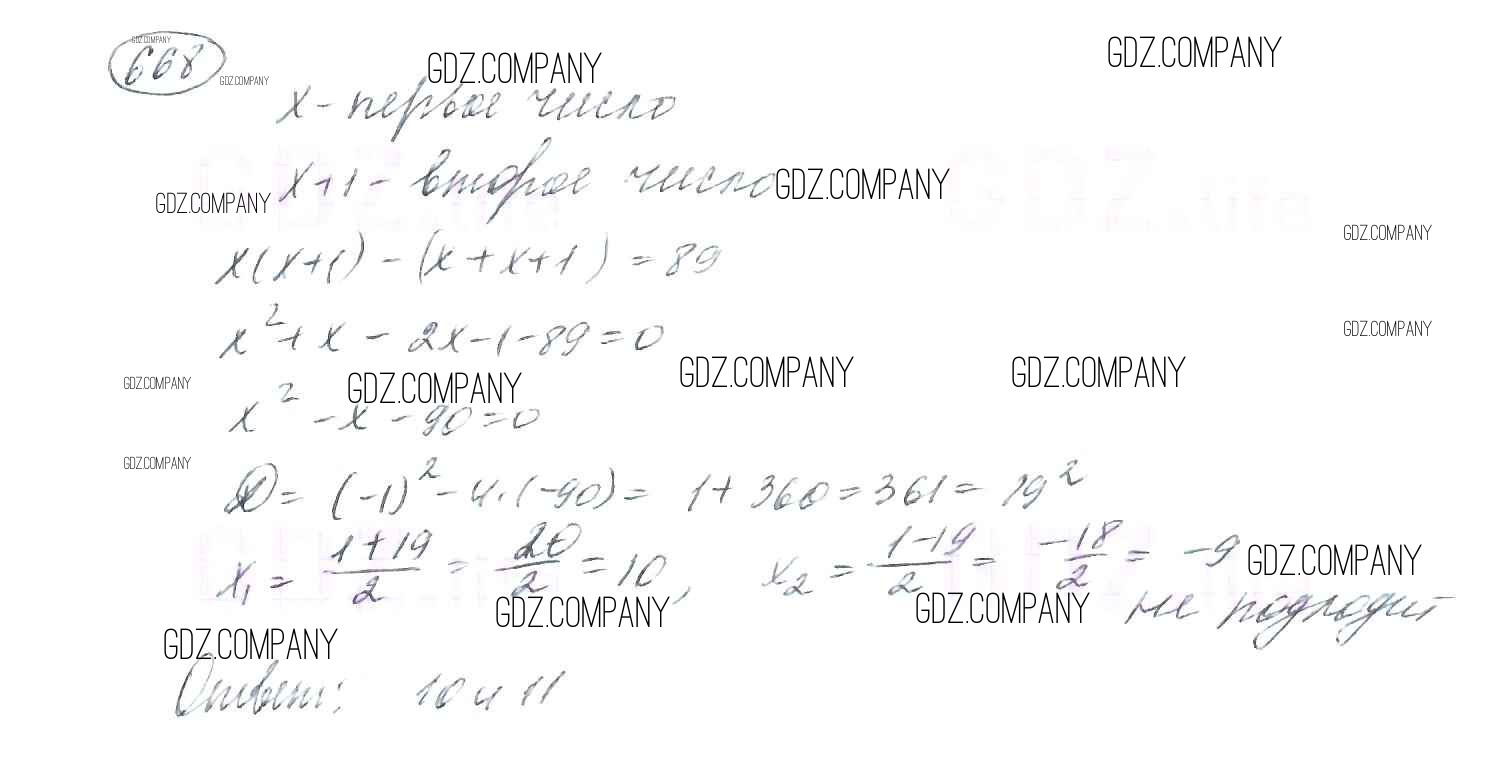 GDZ.COMPANY
668
GDZ.COMPANY
GDZ.COMPANY
GDZ.COMPANY
x - первое число
x+1 - второе число GDZ.COMPANY
GDZ.COMPANY
GDZ.life GDZ.life
x(x+1) - (x+x+1) = 89
GDZ.COMPANY
x² + x - 2x - 1 - 89 = 0
GDZ.COMPANY
GDZ.COMPANY GDZ.COMPANY GDZ.COMPANY GDZ.COMPANY
x² - x - 90 = 0
GDZ.COMPANY
D = (-1)² - 4·(-90) = 1 + 360 = 361 = 19²
x₁ = (1+19)/2 = 20/2 = 10, x₂ = (1-19)/2 = -18/2 = -9 GDZ.COMPANY
GDZ.COMPANY GDZ.COMPANY не подходит
GDZ.COMPANY
Ответ: 10 и 11